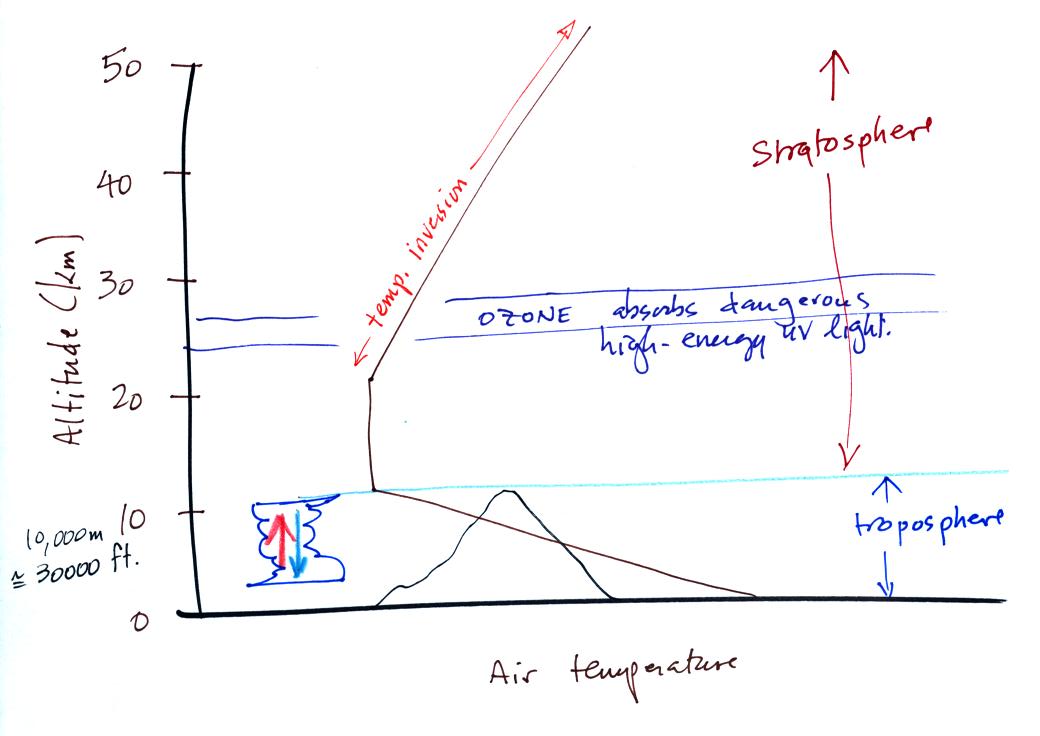 50
40
30
20
10
0
Altitude (km)
10,000m
≅ 30000 ft.
temp. inversion
Stratosphere
OZONE absorbs dangerous
high-energy UV light.
troposphere
Air temperature